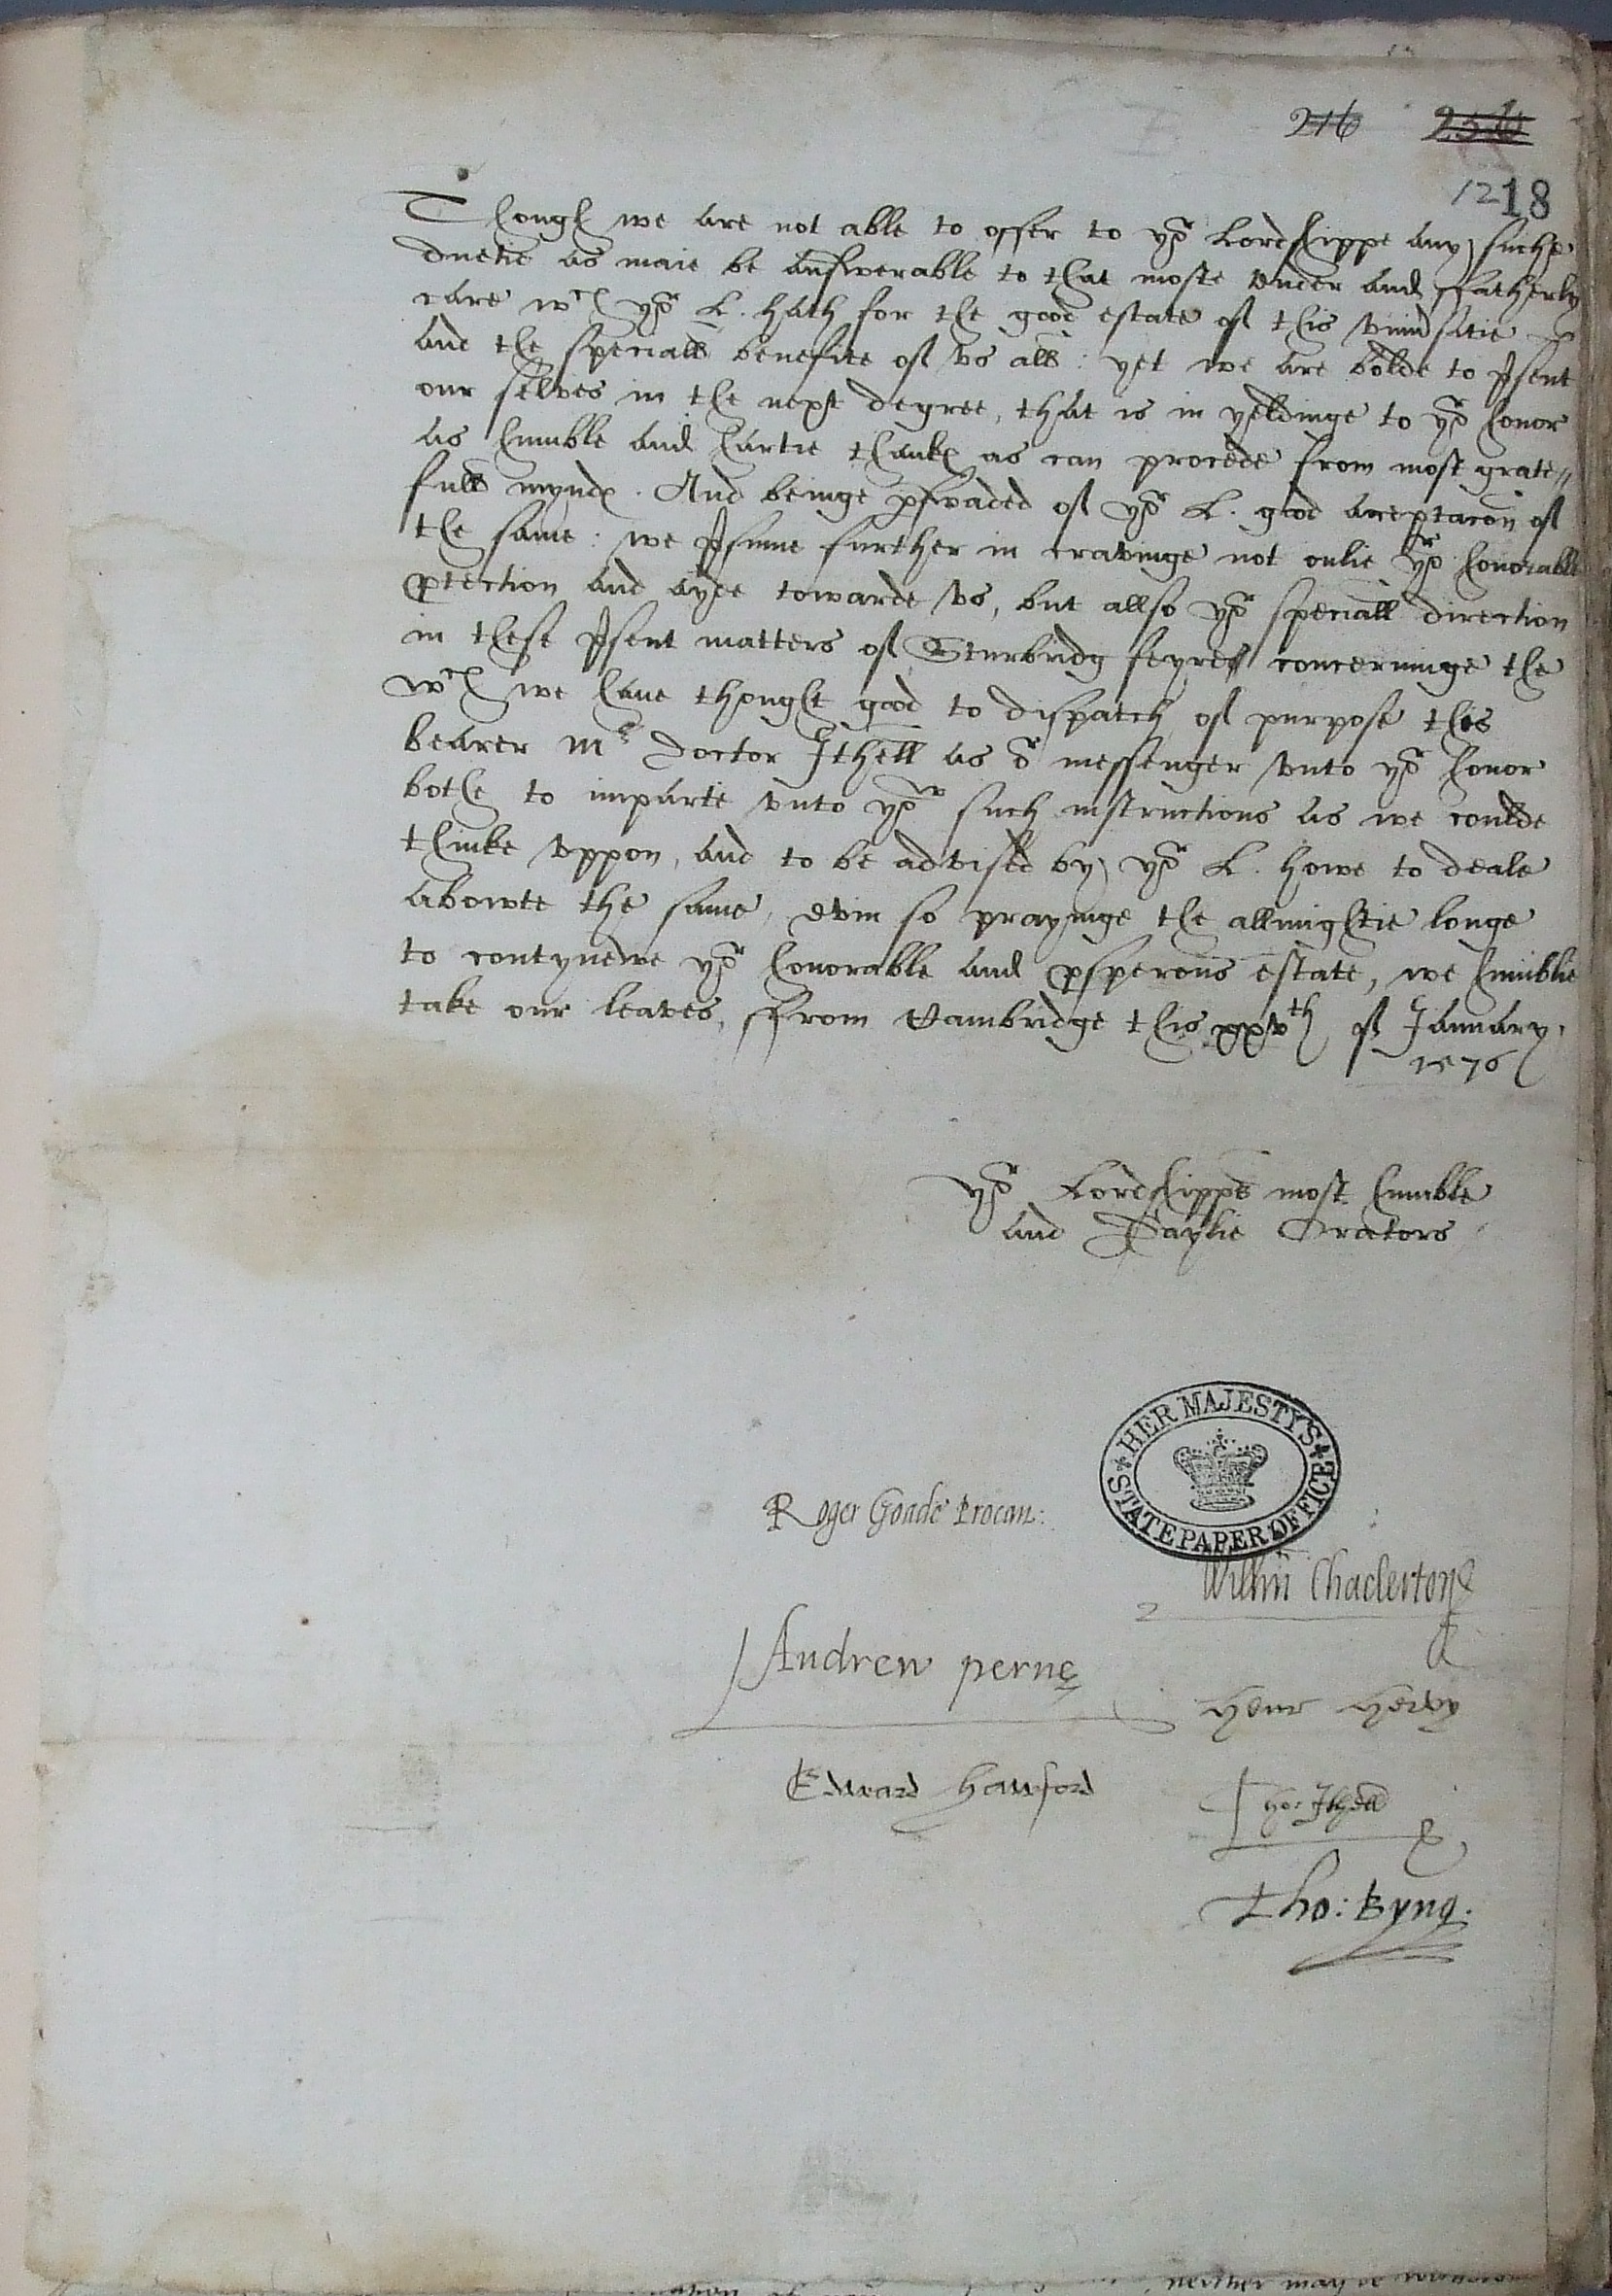 216 256
1218
Though we are not able to offer to yor Lordshippe any suche
duetie as maie be answerable to that moste tender and fatherly
care wch yor L. hath for the good estate of this universitie
and the speciall benefite of vs all: yet we are bolde to psent
our selves in the next degree, that is in yeldinge to yor honor
as humble and hartie thankes as can procede from most grate//
full myndes. And beinge pswaded of yor L. good acceptacon of
the same: we psume further in cravinge not onlie yor honorable
ptection and ayde towarde vs, but allso yor speciall direction
in these psent matters of Sturbridg feyre concerninge the
wch we have thought good to dispatch of purpose this
bearer Mr Doctor Ithell as or messenger vnto yor honor
bothe to imparte vnto yor such instructions as we coulde
thinke vppon, and to be advised by yor L. howe to deale
abowte the same, evin so prayinge the allmightie longe
to contynewe yor honorable and psperous estate, we humblie
take our leaves, ffrom Cambridge this xxvth of January.
1576
yor Lordshipps most humble
and Daylie Orators
HER MAJESTY'S STATE PAPER OFFICE
Roger Goade Procan:
Willm Chaderton
Andrew perne
Henr Hervy
Edward Hawford
Tho: Ithell
Tho: Byng.
neither may